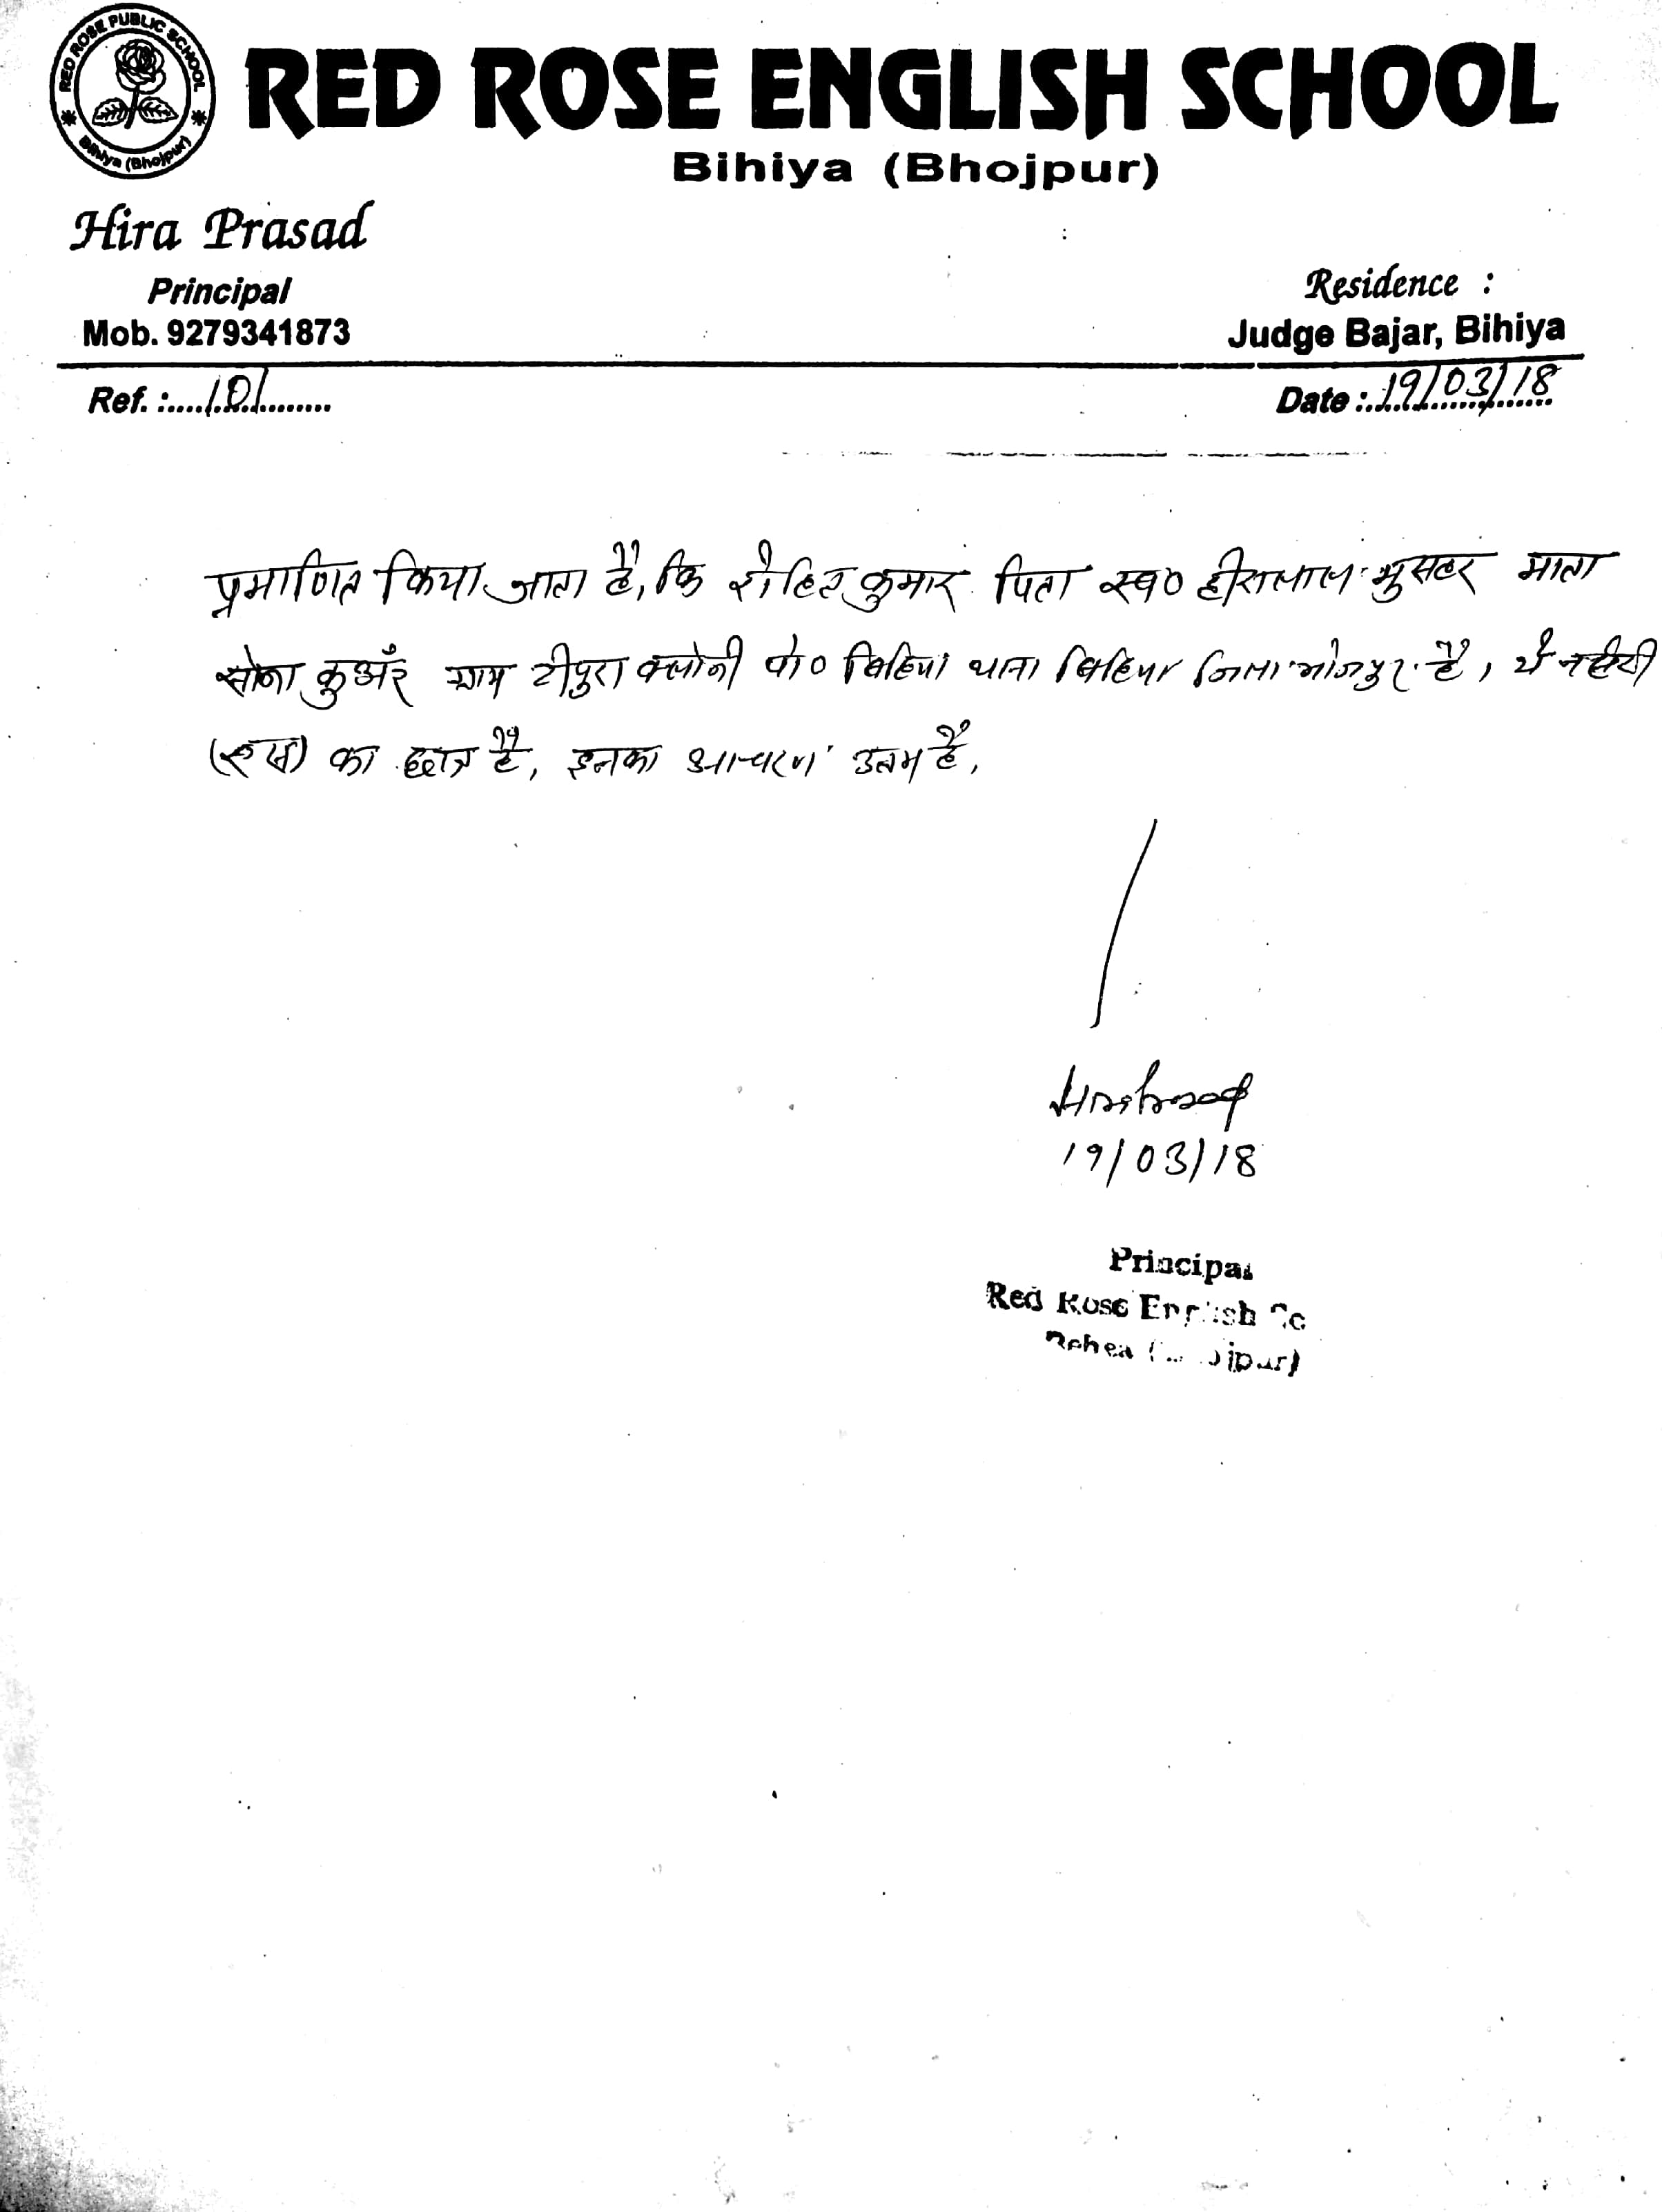 RED ROSE PUBLIC SCHOOL
Bihiya (Bhojpur)
RED ROSE ENGLISH SCHOOL
Bihiya (Bhojpur)
Hira Prasad
Principal
Mob. 9279341873
Residence :
Judge Bajar, Bihiya
Ref. :....101.........
Date :..19/03/18
प्रमाणित किया जाता है, कि रोहित कुमार पिता स्व० हीरालाल मुसहर माता
कुअँर ग्राम टीपुरा क्लोनी पो० बिहिया थाना बिहिया जिला भोजपुर है, ये
का छात्र है, इनका आचरण उतम है,
19/03/18
Principal
Red Rose English Sc